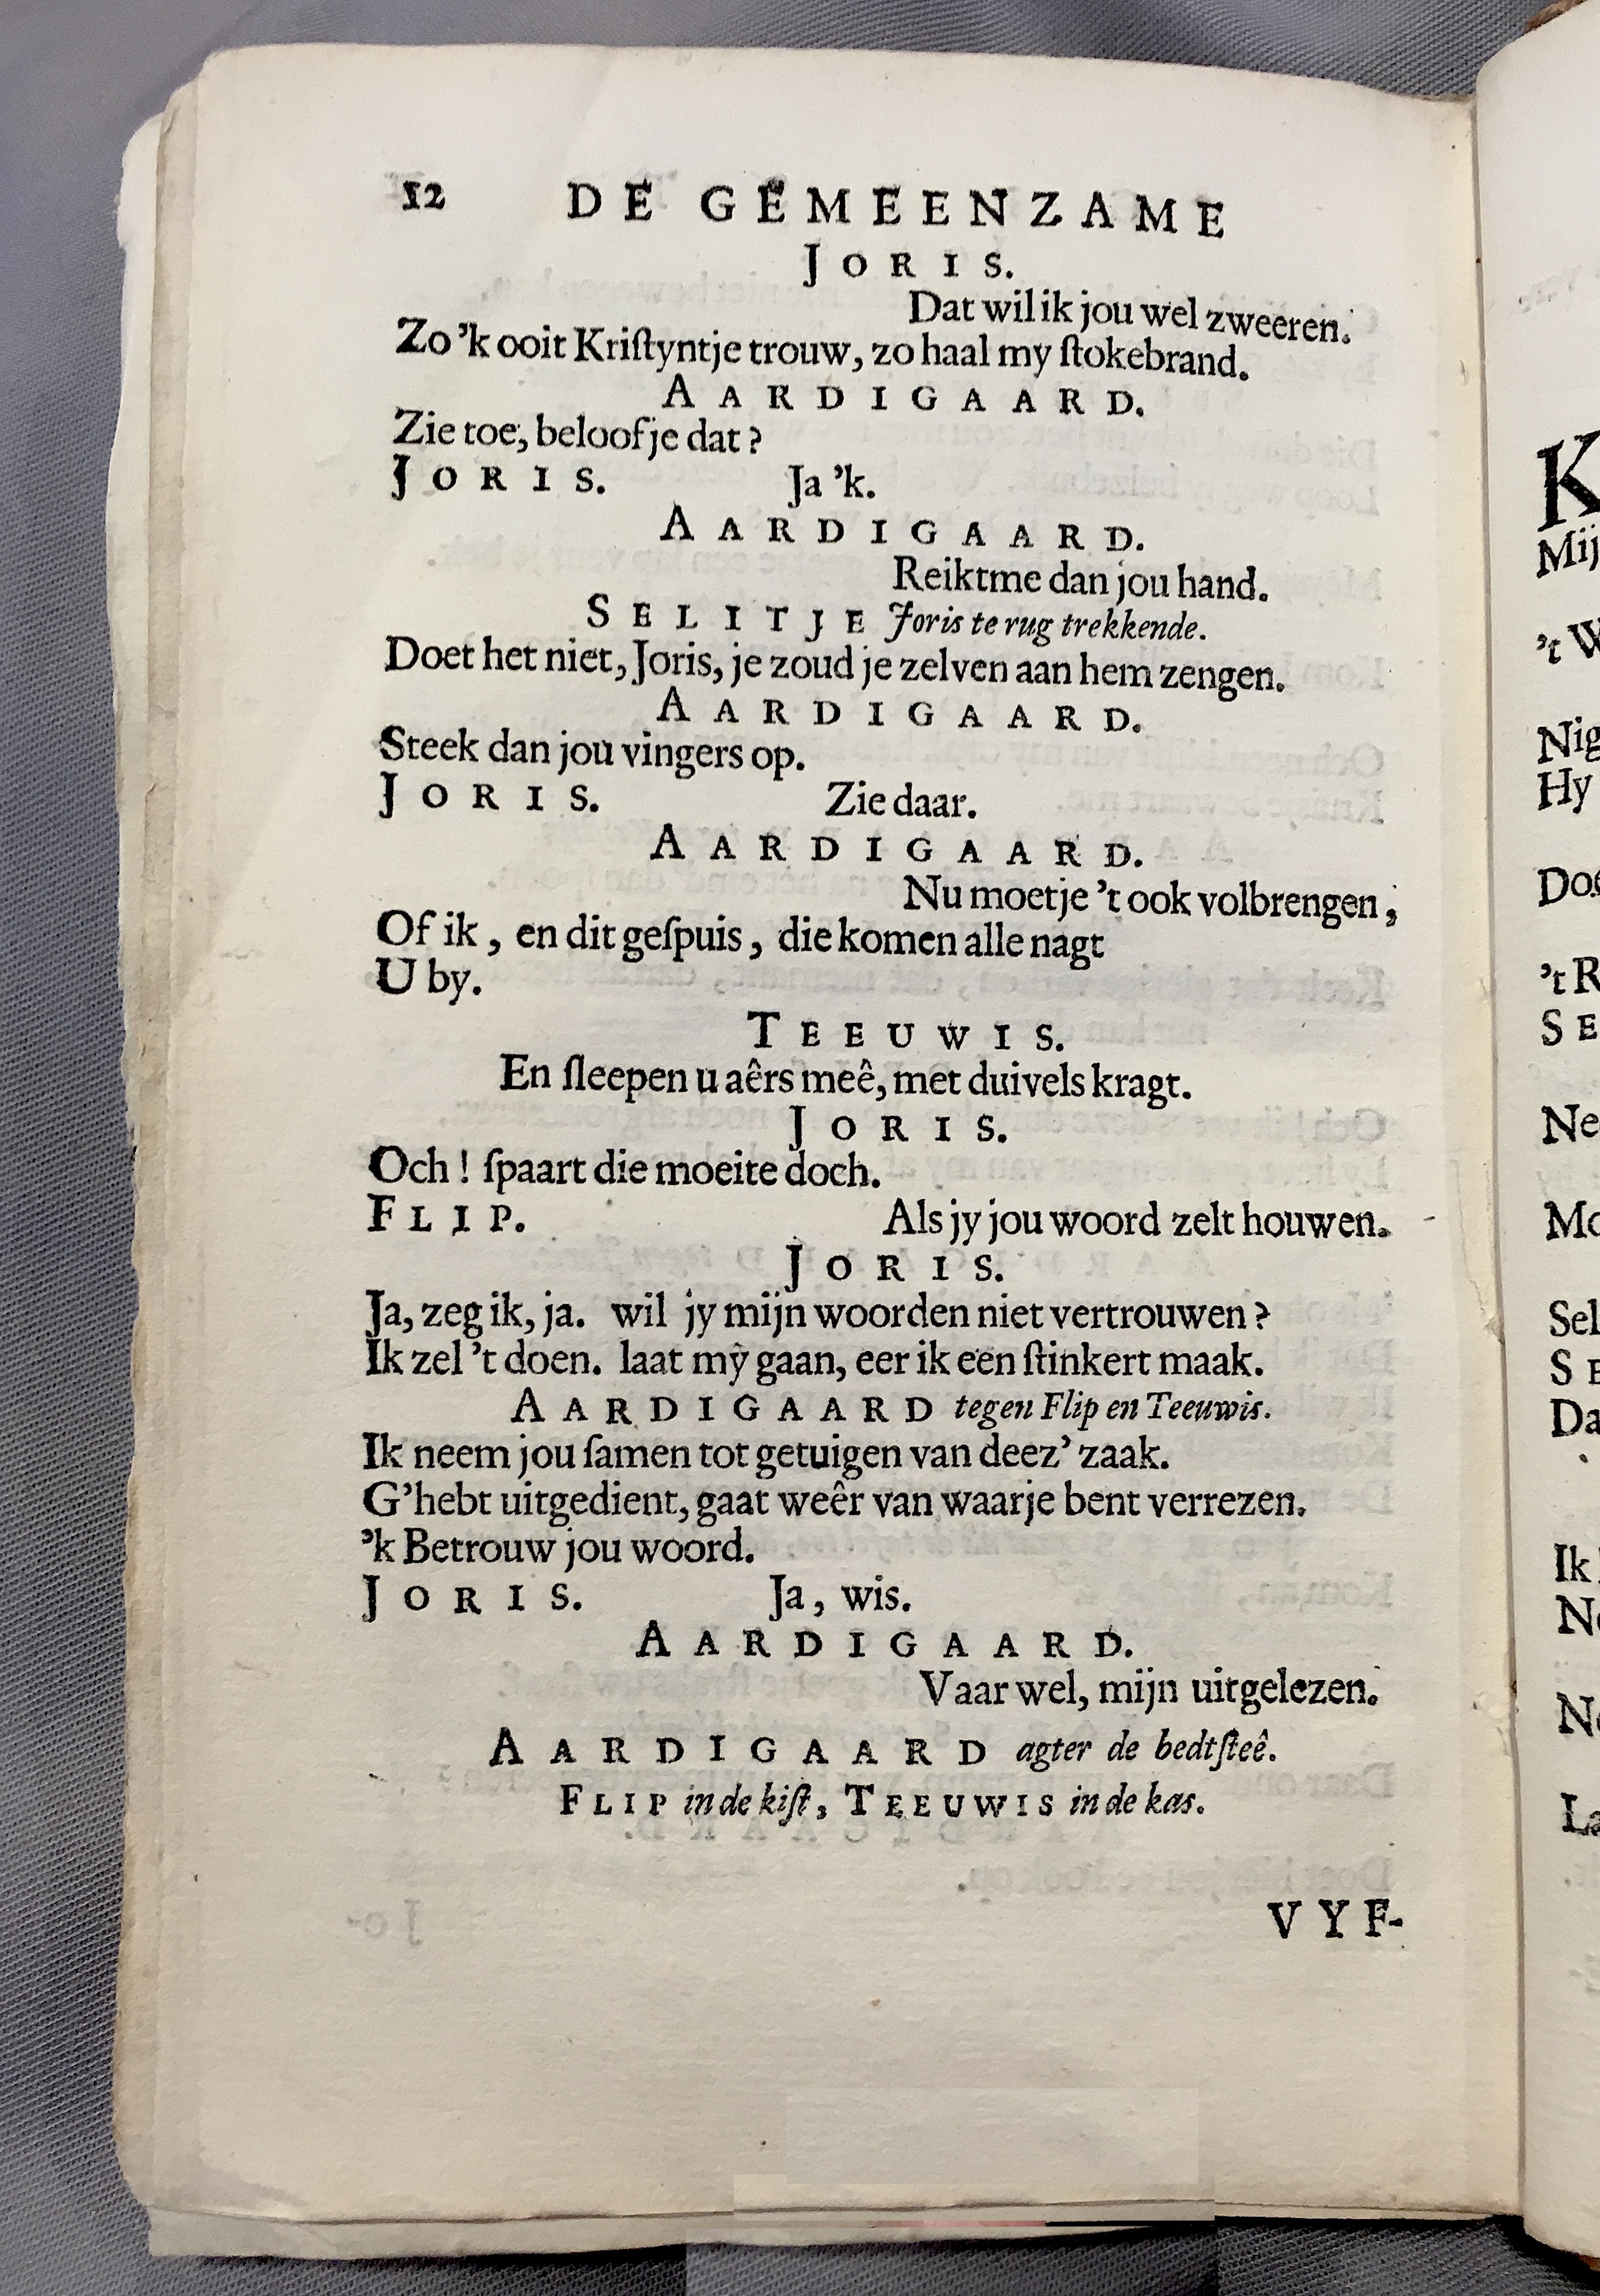 12 DE GEMEENZAME
JORIS.
Dat wil ik jou wel zweeren.
Zo 'k ooit Kriſtyntje trouw, zo haal my ſtokebrand.
AARDIGAARD.
Zie toe, beloof je dat?
JORIS. Ja 'k.
AARDIGAARD.
Reikt me dan jou hand.
SELITJE Joris te rug trekkende.
Doet het niet, Joris, je zoud je zelven aan hem zengen.
AARDIGAARD.
Steek dan jou vingers op.
JORIS. Zie daar.
AARDIGAARD.
Nu moetje 't ook volbrengen,
Of ik, en dit geſpuis, die komen alle nagt
U by.
TEEUWIS.
En ſleepen u aêrs meê, met duivels kragt.
JORIS.
Och! ſpaart die moeite doch.
FLIP. Als jy jou woord zelt houwen.
JORIS.
Ja, zeg ik, ja. wil jy mijn woorden niet vertrouwen?
Ik zel 't doen. laat my gaan, eer ik een ſtinkert maak.
AARDIGAARD tegen Flip en Teeuwis.
Ik neem jou ſamen tot getuigen van deez' zaak.
G'hebt uitgedient, gaat weêr van waarje bent verrezen.
'k Betrouw jou woord.
JORIS. Ja, wis.
AARDIGAARD.
Vaar wel, mijn uitgelezen.
AARDIGAARD agter de bedtſteê.
FLIP in de kiſt, TEEUWIS in de kas.
VYF-
K
Mij
't W
Nig
Hy
't R
SE
Ne
Mo
Sel
SE
Da
Ik
Ne
Ne
La